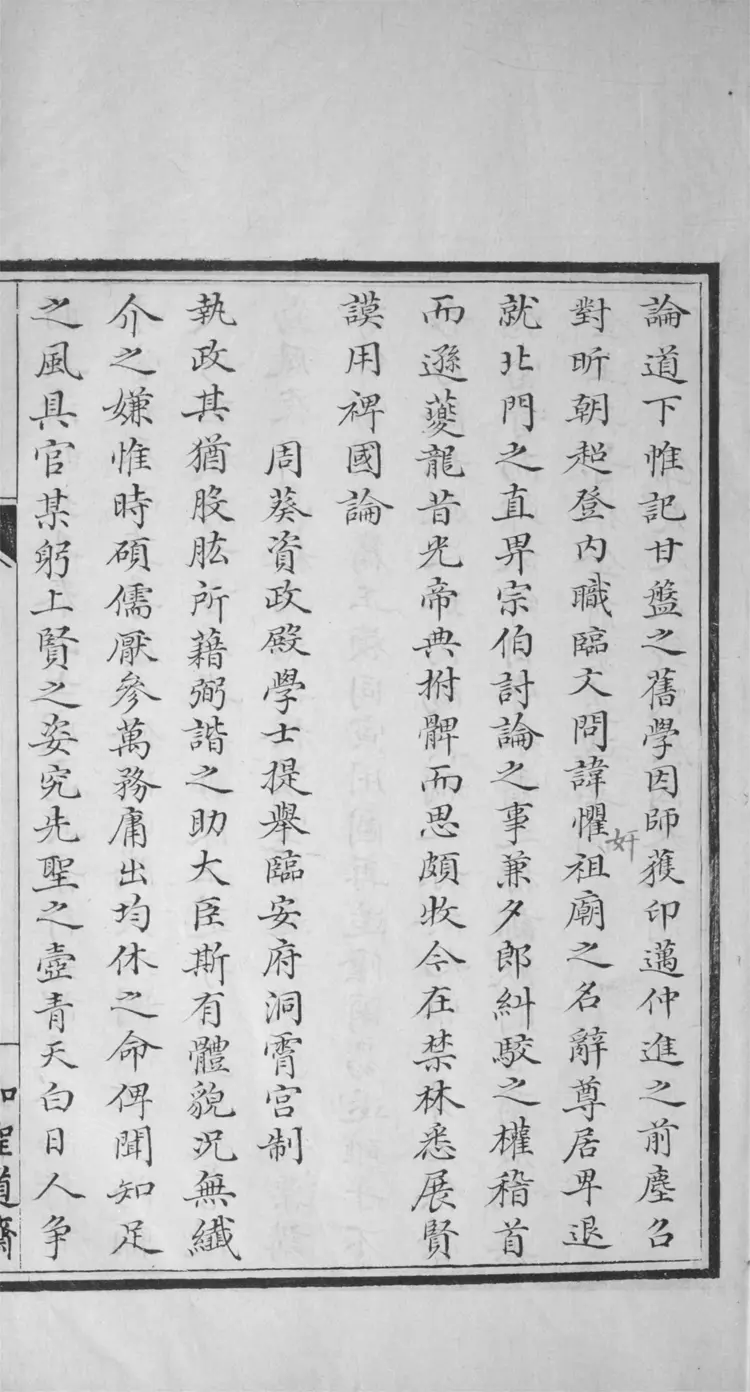 論道下惟記甘盤之舊學因師獲印邁仲進之前塵召
對昕朝超登内職臨文問諱懼祖廟之名辭尊居卑退
奸
就北門之直畀宗伯討論之事兼夕郎糾駮之權稽首
而遜夔龍昔光帝典拊髀而思頗牧今在禁林悉展賢
謨用裨國論
周葵資政殿學士提舉臨安府洞霄宮制
執政其猶股肱所藉弼諧之助大臣斯有體貌況無纖
介之嫌惟時碩儒厭參萬務庸出均休之命俾聞知足
之風具官某躬上賢之姿究先聖之壼青天白日人争
知聖道齋